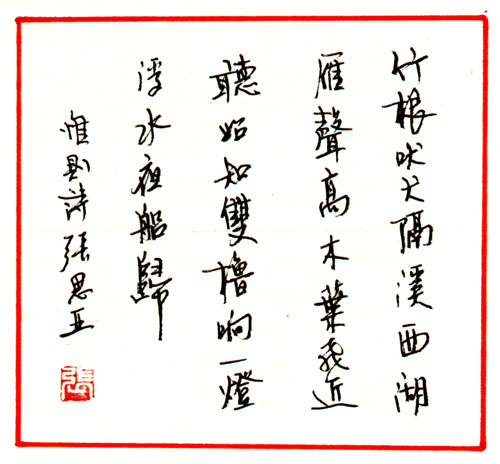 竹根吠犬隔溪西湖
雁聲高木葉飛近
聽始知雙櫓响一燈
浮水夜船歸
惟則詩張思亚
張